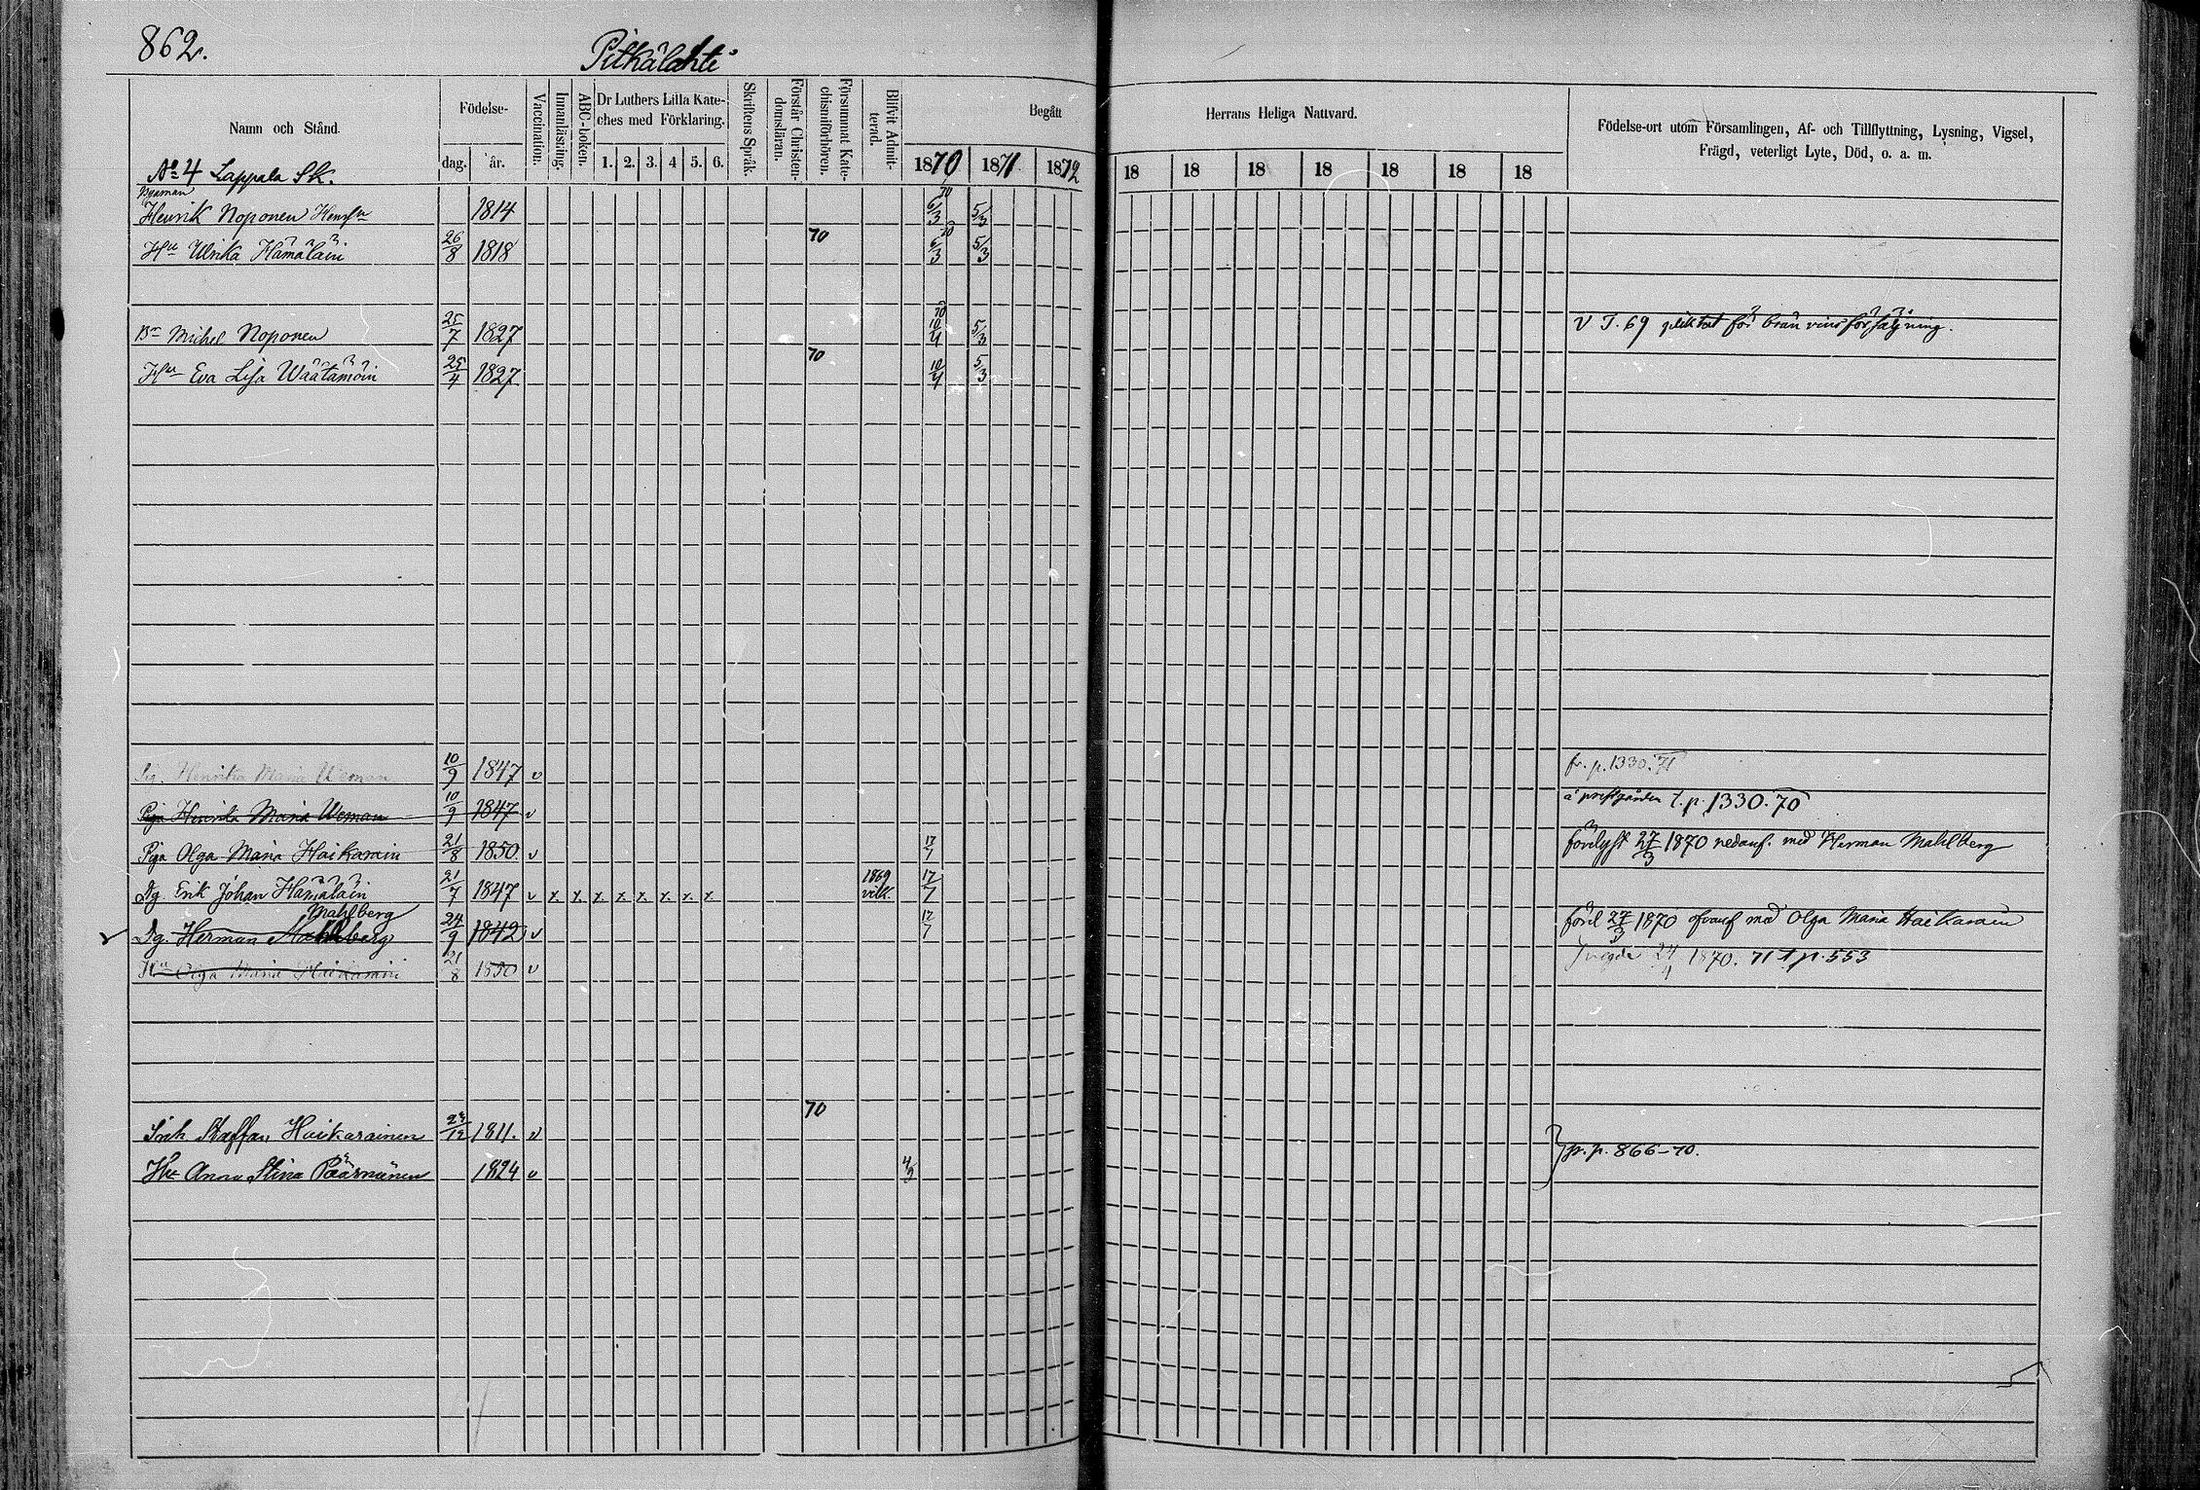 862.
Pitkälahti
Namn och Stånd.
Födelse-
dag.
år.
Vaccination.
Innanläsning.
ABC-boken.
Dr Luthers Lilla Kate-
ches med Förklaring.
1. 2. 3. 4 5. 6.
Skriftens Språk.
Förstår Christen-
domsläran.
Försummat Kate-
chismiförhören.
Blifvit Admit-
terad.
Begått
Herrans Heliga Nattvard.
1870 1871 1872
18 18 18 18 18 18 18
Födelse-ort utom Församlingen, Af- och Tillflyttning, Lysning, Vigsel,
Frägd, veterligt Lyte, Död, o. a. m.
No 4 Lappala SK.
Henrik Noponen 1814 6/3 5/3
Hu Ulrika Hämäläin 26/8 1818 70 6/3 5/3
Bn Michel Noponen 25/7 1827 10/4 5/3 V T. 69 pliktat för brännvinsförsäljning.
Hu Eva Lisa Wäätämöin 25/4 1827 70 10/4 5/3
Pig. Henrika Maria Weman 10/9 1847 v fr. p. 1330. 71
Piga Henrika Maria Weman 10/9 1847 v å prestgården t. p. 1330. 70
Piga Olga Maria Haikarain 21/8 1850. v 17/7 förelyst 27/3 1870 nedanf. med Herman Mahlberg
Dg Erik Johan Hämäläin 21/7 1847 v x x x x x x x x 1869 vilk. 17/7
Mahlberg
Dg. Herman Mahlberg 24/9 1842 v 17/7 förel 27/3 1870 ofvanf med Olga Maria Haikarain
Hu Olga Maria Haikarain 21/8 1850 v vigde 24/4 1870. 71 t p. 553
Erik Staffan Haikarainen 23/12 1811. v 70
Hu Anna Stina Pääsmänen 1824 v 4/9 fr. p. 866-70.